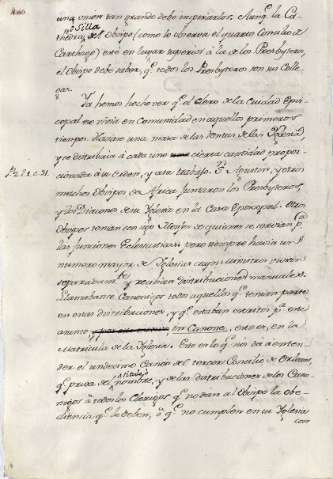 una union tan grande debe inspirarles. Aunq.e la Ca-
thedra, ò Silla del Obispo (como lo observa el quarto Concilio de
Carthago) esté en lugar superior à la de los Presbyteros,
el Obispo debe saber, q.e todos los Presbyteros son sus Colle-
gas.
Ya hemos hecho ver q.e el Clero de la Ciudad Epis-
copal vivia en Comunidad en aquellos primeros
tiempos. Haciase una masa de las rentas de las Iglesias,
y se distribuia à cada uno cierta cantidad propor-
cionada à su orden, y à su trabajo. S.n Agustin, y otros
muchos Obispos de Africa juntaron los Presbyteros,
y los Diaconos de su Iglesia en la Casa Episcopal. Otros
Obispos tenian consigo de quienes se servian p.a
las funciones Eclesiasticas; pero siempre havia un
numero mayor de Iglesia cuyos ministros vivian
separadam.te y recibian distribuciones manuales.
Llamabanse Canonigos todos aquellos q.e tenian parte
en estas distribuciones, y q.e estaban escritos p.a este
asunto in Canone, esto es, en la
Matricula de la Iglesia. Esto es lo q.e nos da à enten-
der el undecimo Canon del tercer Concilio de Orleans,
q.e priva del titulo, y nombre, y de las distribuciones de los Cano-
nigos à todos los Clerigos q.e no dan al Obispo la obe-
diencia q.e le deben, ò q.e no cumplen en su Iglesia
con